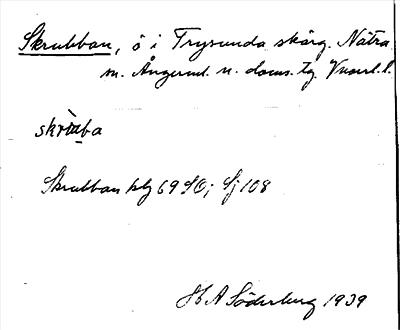 Skrubban, ö i Trysunda skärg. Nätra
sn. Ångerml. n. doms. tg. Vnorrl. l.
skrùba
Skrubban kbl 69 SO; Sj 108
H A Söderberg 1939